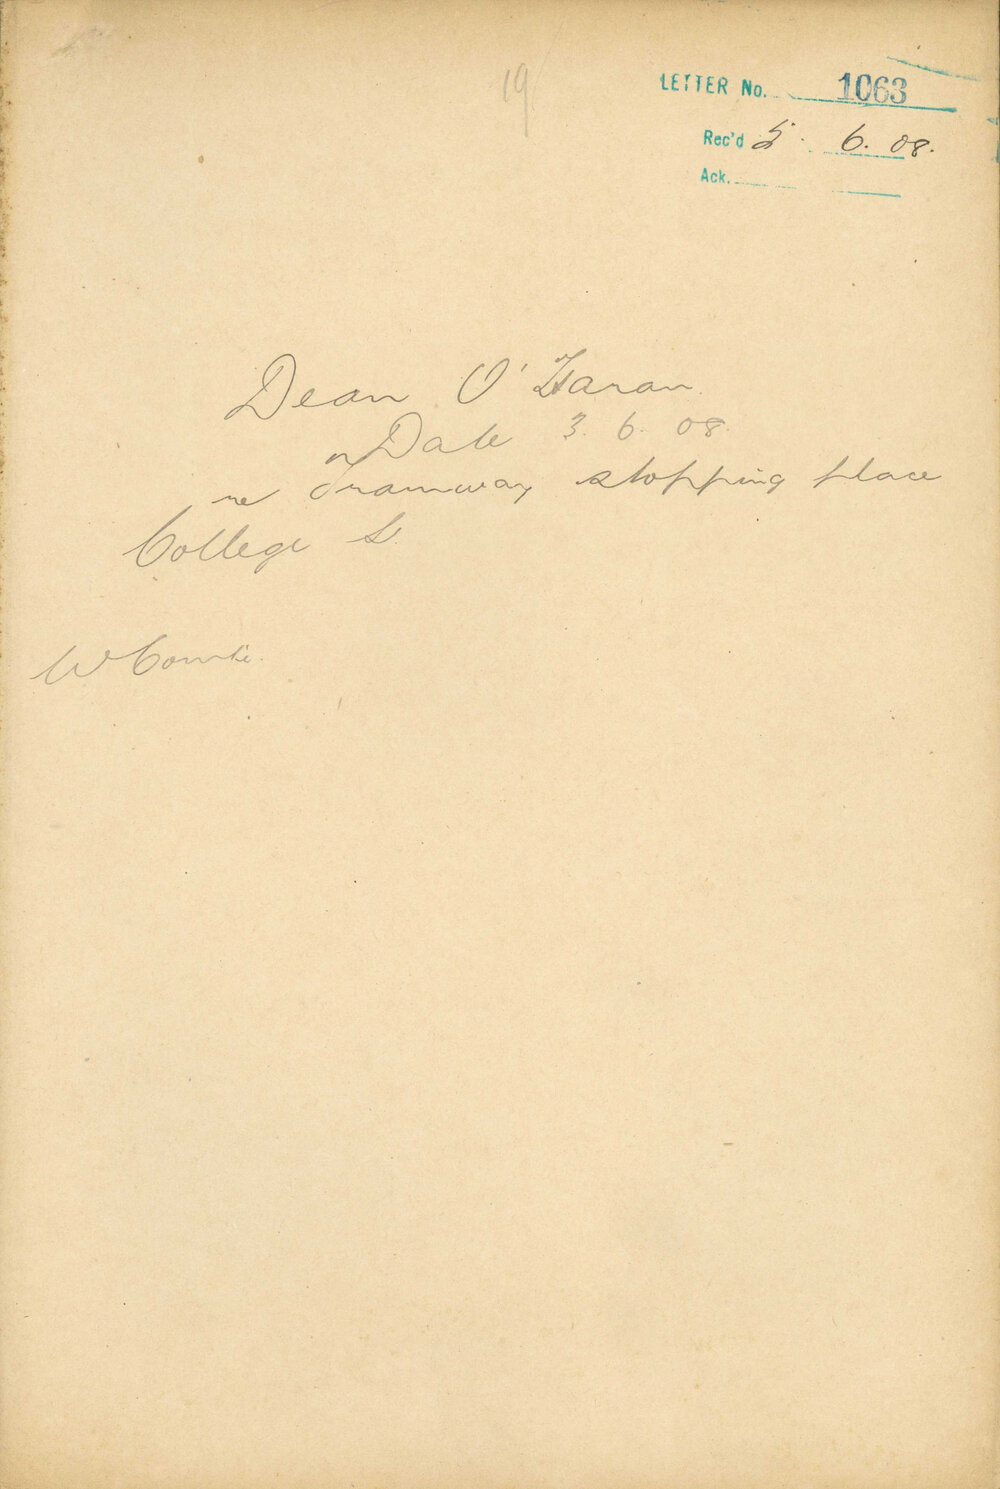 19
LETTER No. 1063
Rec'd 5. 6. 08.
Ack.
Dean O'Haran
Date 3. 6. 08.
re Tramway stopping place
College St.
W Comte.